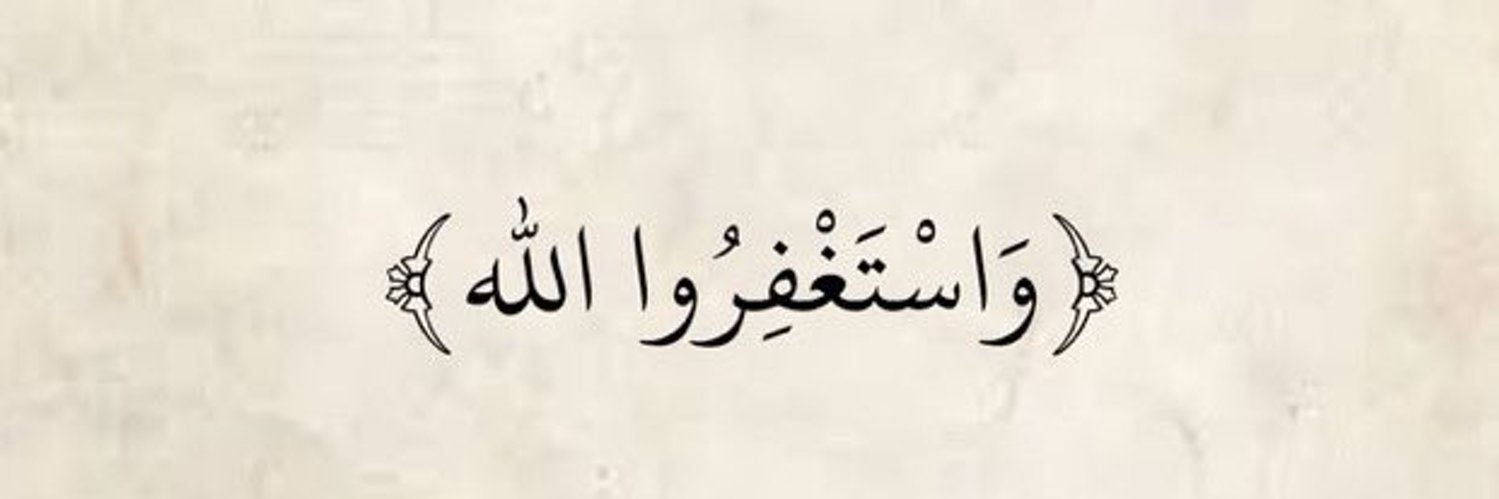 ﴿وَاسْتَغْفِرُوا الله﴾